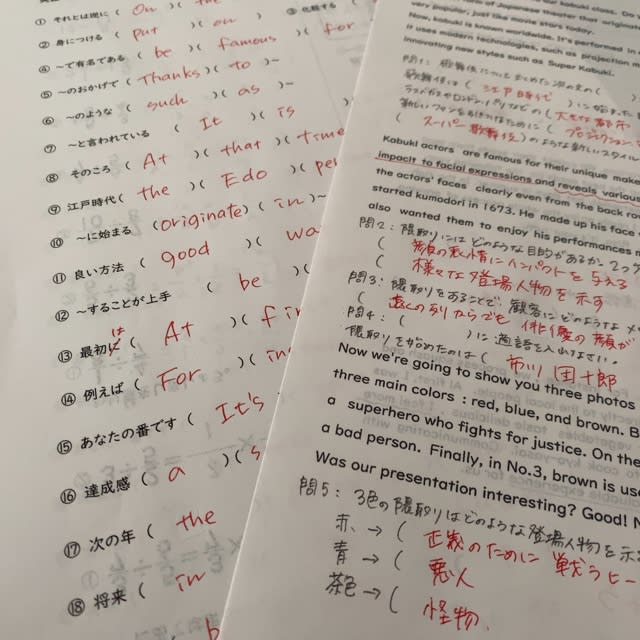 ① それとは逆に ( On ) ( the
② 身につける ( put ) ( on )
③ 化粧する (
④ ～で有名である ( be ) ( famous ) ( for
⑤ ～のおかげで ( Thanks ) ( to ) ～
⑥ ～のような ( such ) ( as ) ～
⑦ ～と言われている ( It ) ( is
⑧ そのころ ( At ) ( that ) ( time
⑨ 江戸時代 ( the ) ( Edo ) ( pe
⑩ ～に始まる (originate) ( in ) ～
⑪ 良い方法 ( good ) ( wa
⑫ ～することが上手 ( be ) (
⑬ 最初は ( At ) ( fir
⑭ 例えば ( For ) ( in
⑮ あなたの番です ( It's ) (
⑯ 達成感 ( a ) ( s
⑰ 次の年 ( the
⑱ 将来 ( in
theater that
very popular, just like movie stars today.
Now, kabuki is known worldwide. It's performed in
it uses modern technologies, such as projection m
innovating new styles such as Super Kabuki.
( 江戸時代 ) に始まった
( スーパー歌舞伎 )のような新しいスタイ
Kabuki actors are famous for their unique make
impact to facial expressions and reveals various
the actors' faces clearly even from the back ro
started kumodori in 1673. He made up his face
also wanted them to enjoy his performances m
問2：隈取りにはどのような目的があるか 2つ
( 顔の表情にインパクトを与える
( 様々な登場人物を示す
問3：隈取りをすることで、観客にどのような
( 遠くの列からでも 俳優の顔が
問4：( )に適語を入れなさい。
隈取りを始めたのは ( 市川 團十郎
Now we're going to show you three photos
three main colors : red, blue, and brown.
a superhero who fights for justice. On the
a bad person. Finally, in No.3, brown is us
Was our presentation interesting? Good! N
問5：3色の隈取りはどのような登場人物を示
赤 → ( 正義のために 戦うヒー
青 → ( 悪人
茶色 → ( 怪物